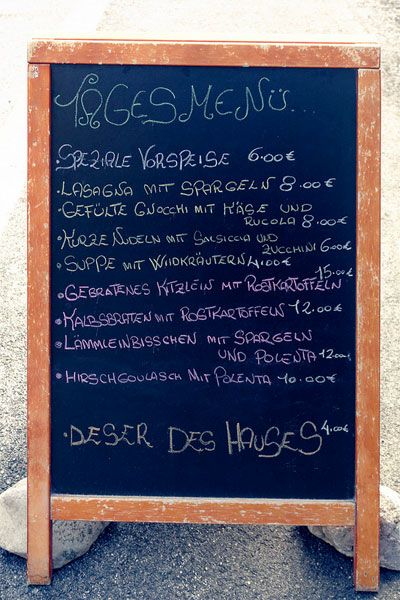 TAGESMENÜ...
• SPEZIALE VORSPEISE 6.00 €
• LASAGNA MIT SPARGELN 8.00 €
• GEFÜLTE GNOCCHI MIT KÄSE UND
RUCOLA 8.00 €
• KURZE NUDELN MIT SALSICCIA UND
ZUCCHINI 6.00 €
• SUPPE MIT WILDKRÄUTERN 4.00 €
15.00 €
• GEBRATENES KITZLEIN MIT ROSTKARTOFFELN
• KALBSBRATEN MIT ROSTKARTOFFELN 12.00 €
• LÄMMLEINBISSCHEN MIT SPARGELN
UND POLENTA 12.00 €
• HIRSCHGOULASCH MIT POLENTA 10.00 €
• DESER DES HAUSES 4.00 €